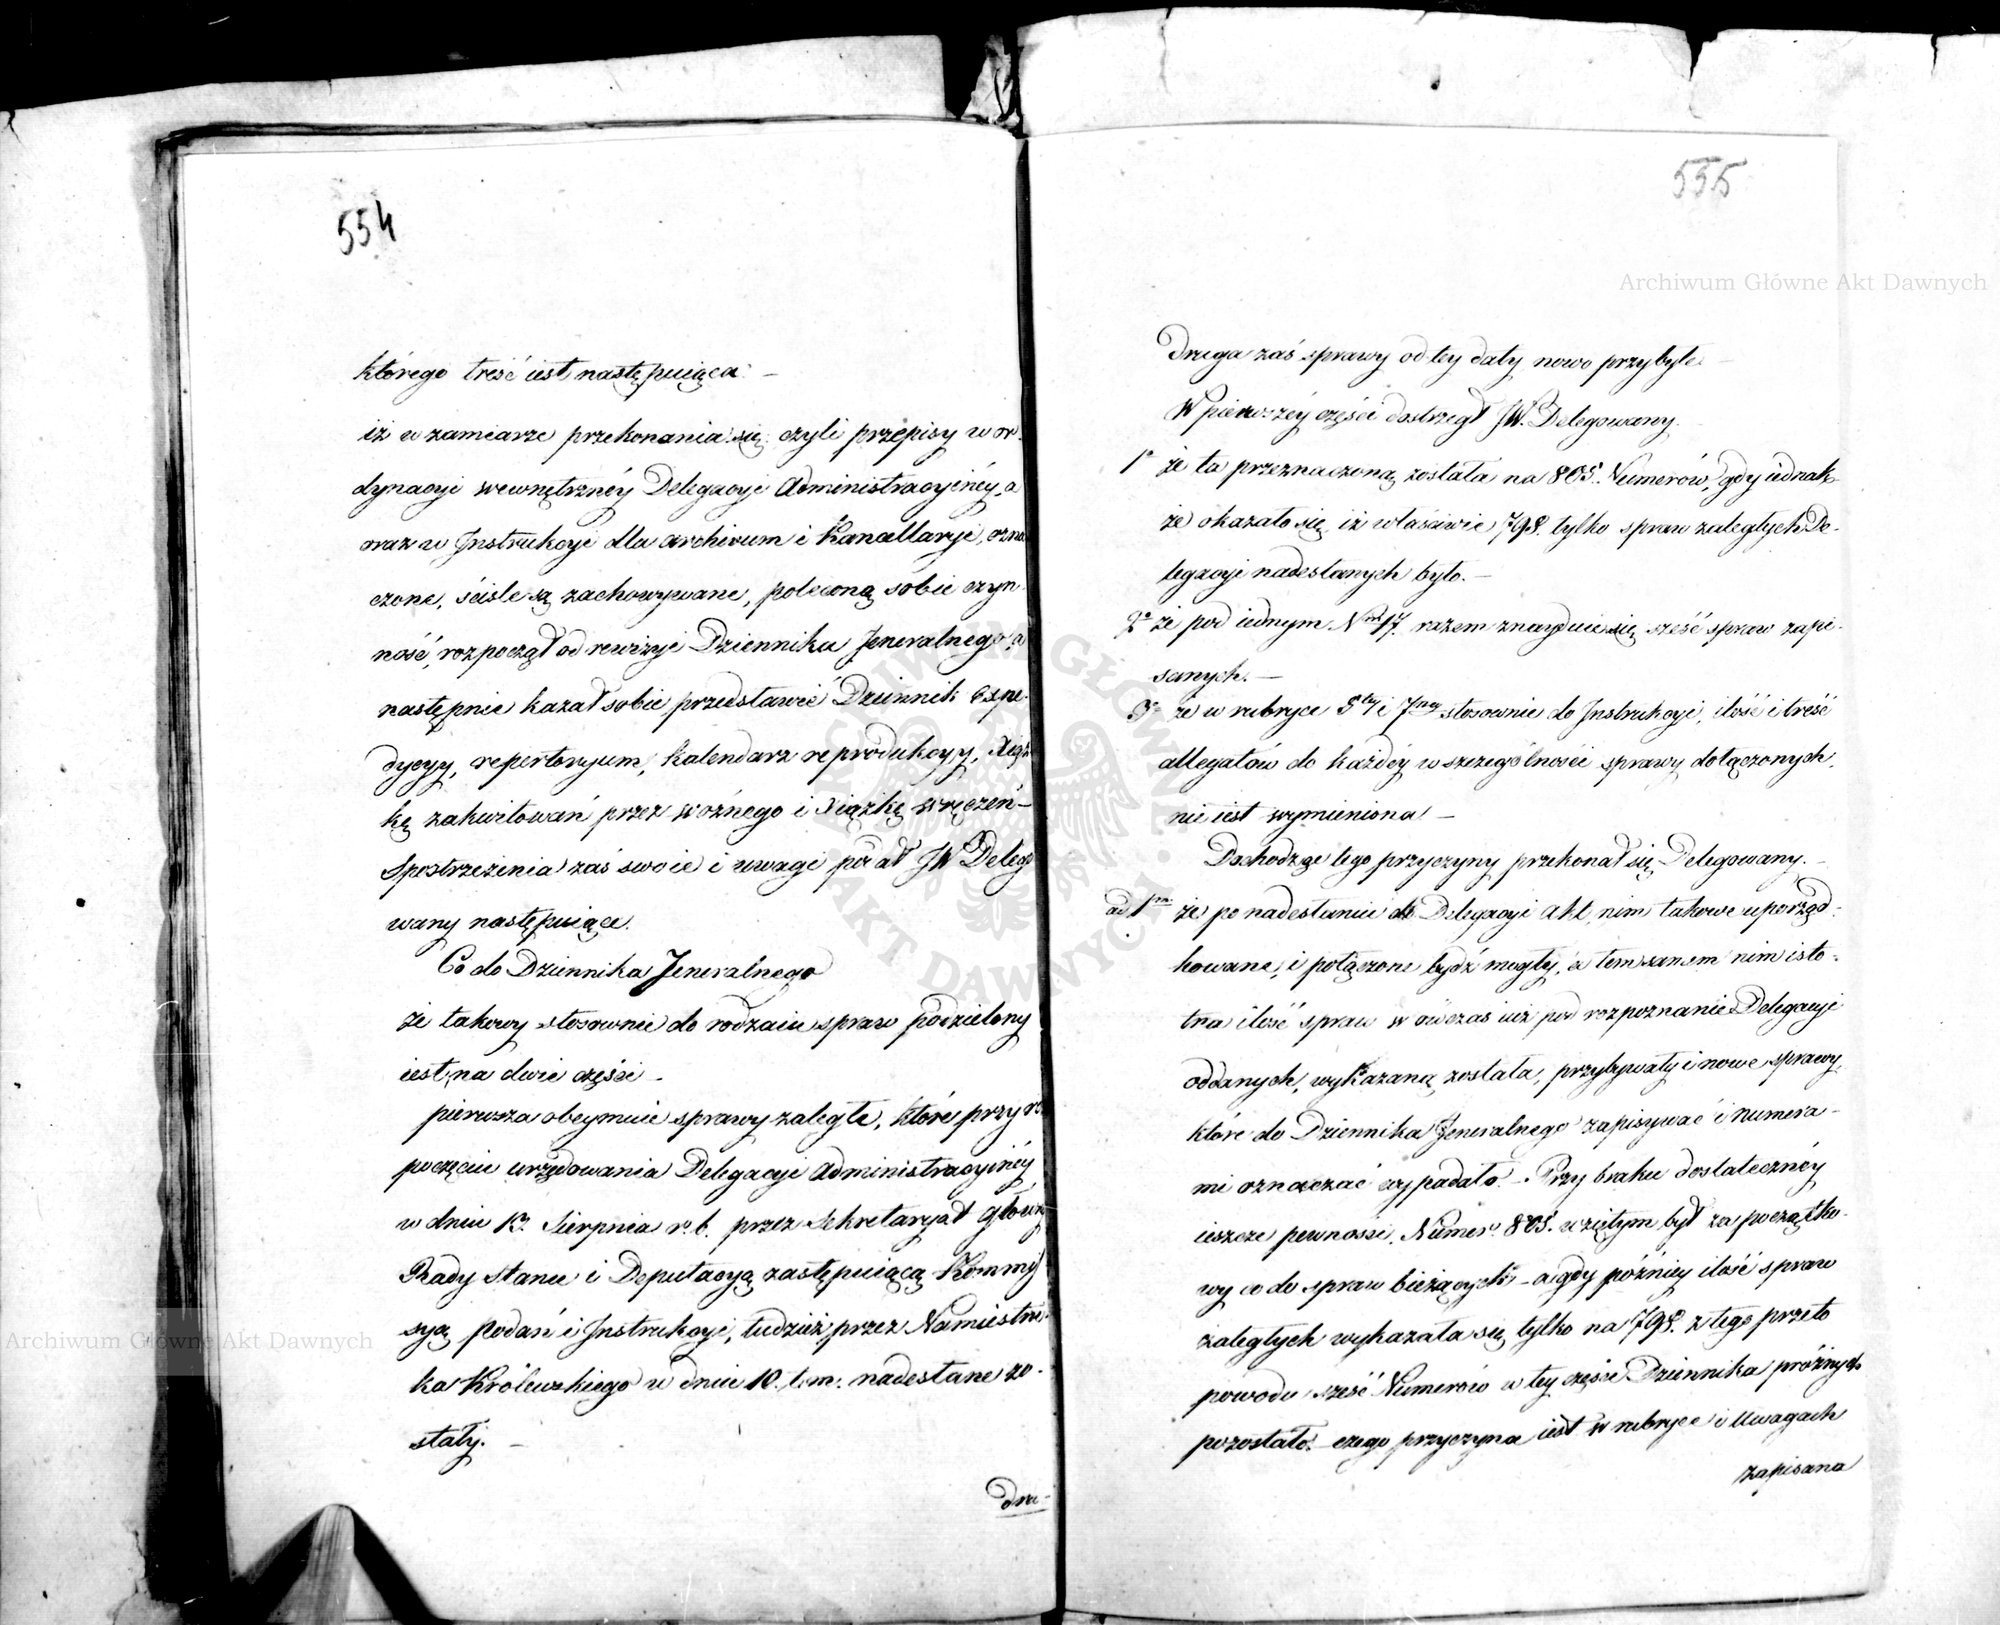 554
którego treść iest następuiąca: —
iż w zamiarze przekonania się czyli przepisy w or-
dynacyi wewnętrznéy Delegacyi Administracyinéy, a
oraz w Instrukcyi dla archiwum i Kancellaryi, ozna
czone, ściśle są zachowywane, poleconą sobie czyn-
ność, rozpoczął od rewizyi Dziennika Jeneralnego, a
następnie kazał sobie przedstawić Dziennik Expe-
dycyy, repertoryum, kalendarz reprodukcyy, Xiąż
kę zakwitowań przez woźnego i Xiążkę wręczeń —
Spostrzeżenia zaś swoie i uwagi podał JW Delego
wany następuiące.
Co do Dziennika Jeneralnego
że takowy stosownie do rodzaiu spraw podzielony
iest na dwie części —
pierwsza obeymuie sprawy zaległe, które przy ro
poczęciu urzędowania Delegacyi Administracyinéy
w dniu 13 Sierpnia r. b. przez Sekretaryat Główny
Rady Stanu i Deputacyą zastępuiącą Kommis
syą Podań i Instrukcyi, tudzież przez Namiestni-
ka Królewskiego w dniu 10 t. m. nadesłane zo-
stały. —
dru-
555
Archiwum Główne Akt Dawnych
Druga zaś sprawy od tey daty nowo przybyłe. —
W pierwszéy części dostrzegł JW. Delegowany.
1° że ta przeznaczoną została na 805. Numerów, gdy iednak-
że okazało się, iż właściwie 798. tylko spraw zaległych De-
legacyi nadesłanych było. —
2° że pod iednym Nrm 17. razem znayduie się sześć spraw zapi-
sanych. —
3° że w rubryce 5tey i 7mey stosownie do Instrukcyi, ilość i treść
allegatów do każdéy w szczególności sprawy dołączonych,
nie iest wymieniona —
Dochodząc tego przyczyny przekonał się Delegowany. —
ad 1m że po nadesłaniu do Delegacyi akt, nim takowe uporząd-
kowane, i połączone bydź mogły, a tem samem nim isto-
tna ilość spraw wówczas iuż pod rozpoznanie Delegacyi
oddanych, wykazaną została, przybywały i nowe sprawy,
które do Dziennika Jeneralnego zapisywać i numera-
mi oznaczać wypadało. — Przy braku dostatecznéy
ieszcze pewności, Numer 805. wziętym był za początko-
wy co do spraw bieżących — a gdy późniey ilość spraw
zaległych wykazała się tylko na 798. z tego przeto
powodu sześć Numerów w tey części Dziennika próżnych
pozostało. — czego przyczyna iest w rubryce i Uwagach
zapisana
Archiwum Główne Akt Dawnych
ARCHIWUM GŁÓWNE
AKT DAWNYCH